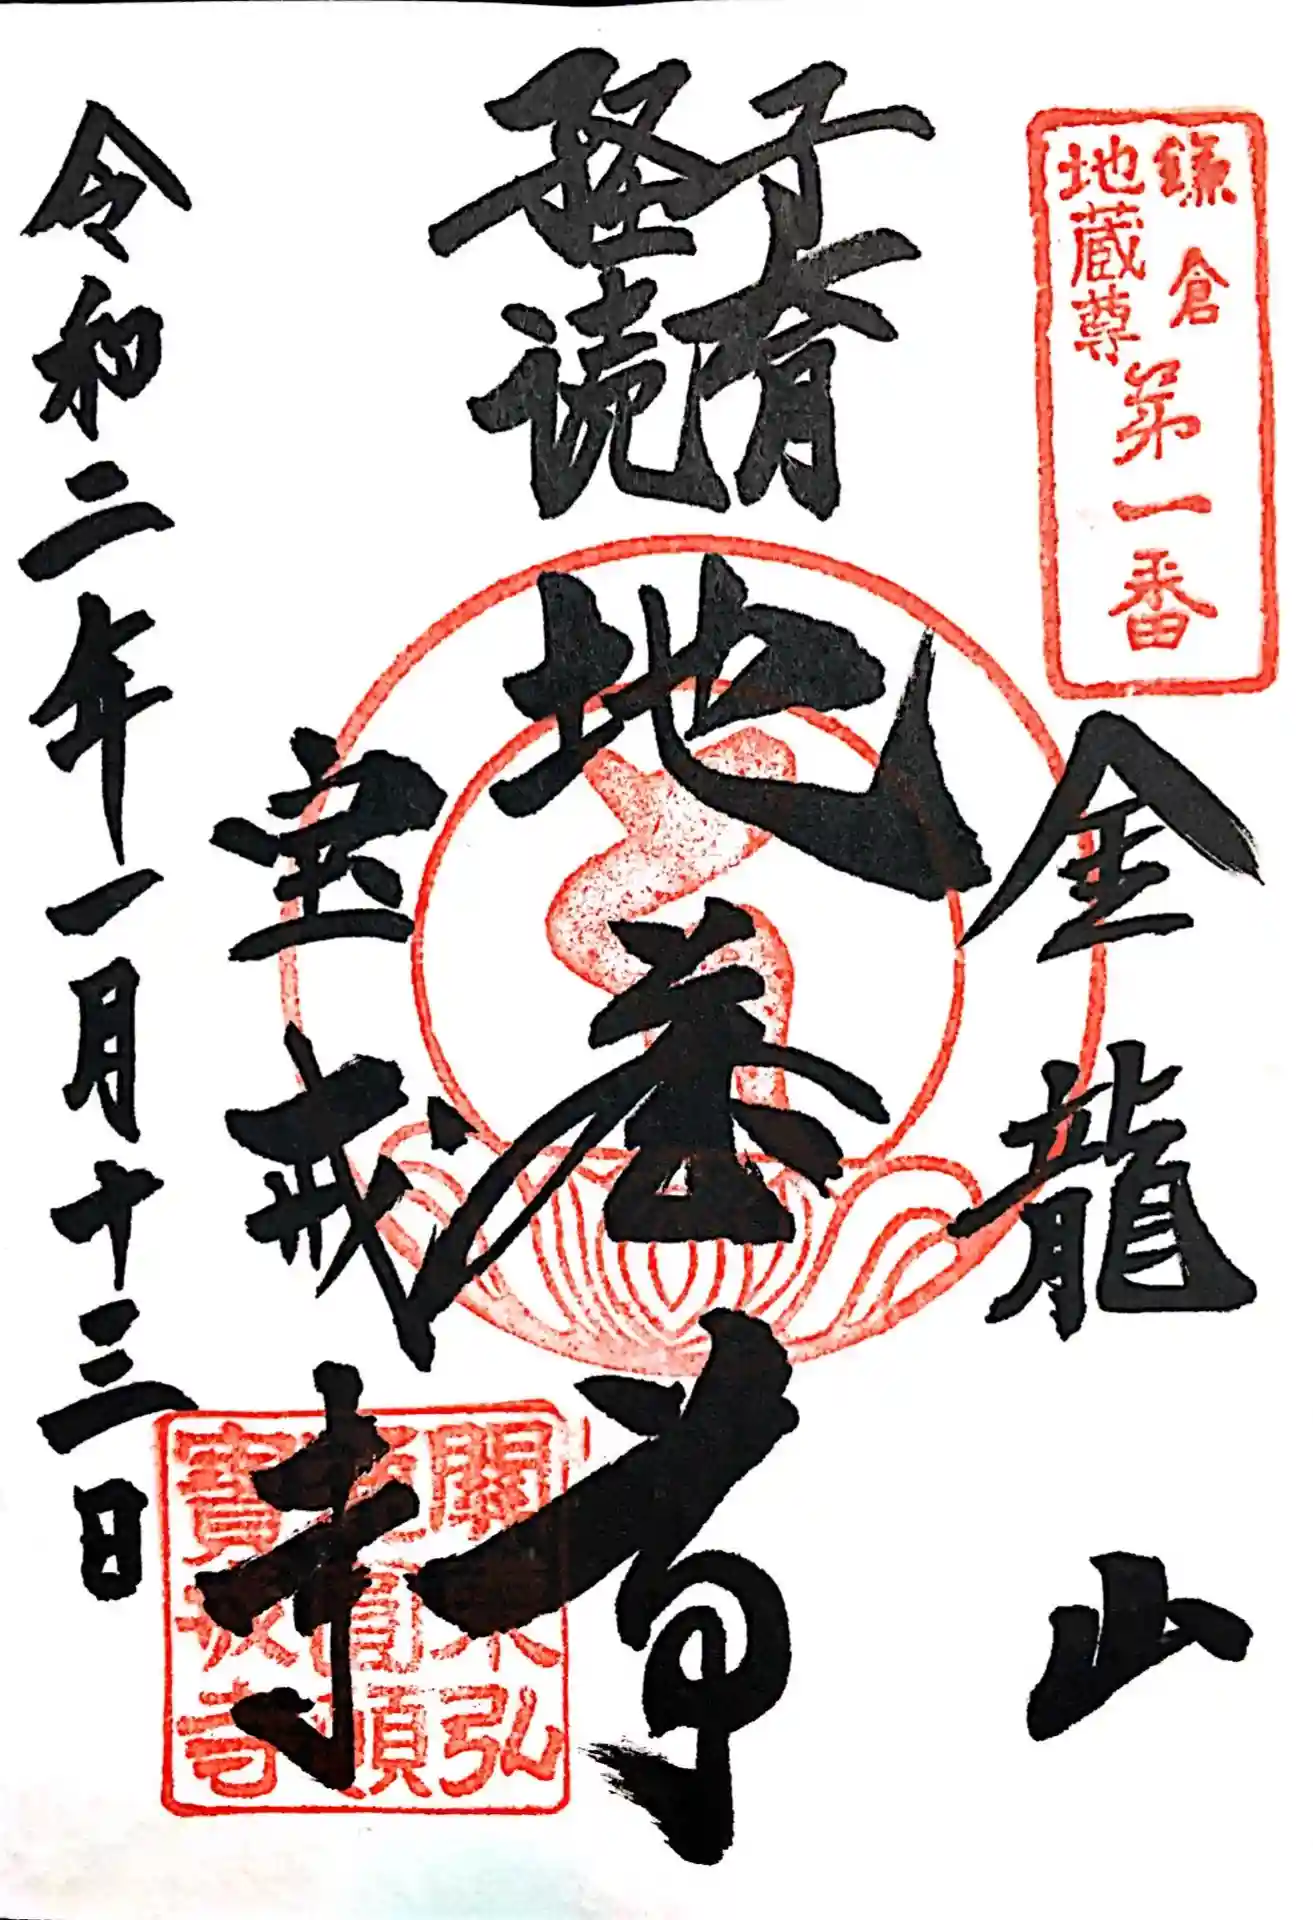 鎌倉
地蔵尊
第一番
金龍山
子育
経読
地蔵尊
宝戒寺
令和二年一月十三日